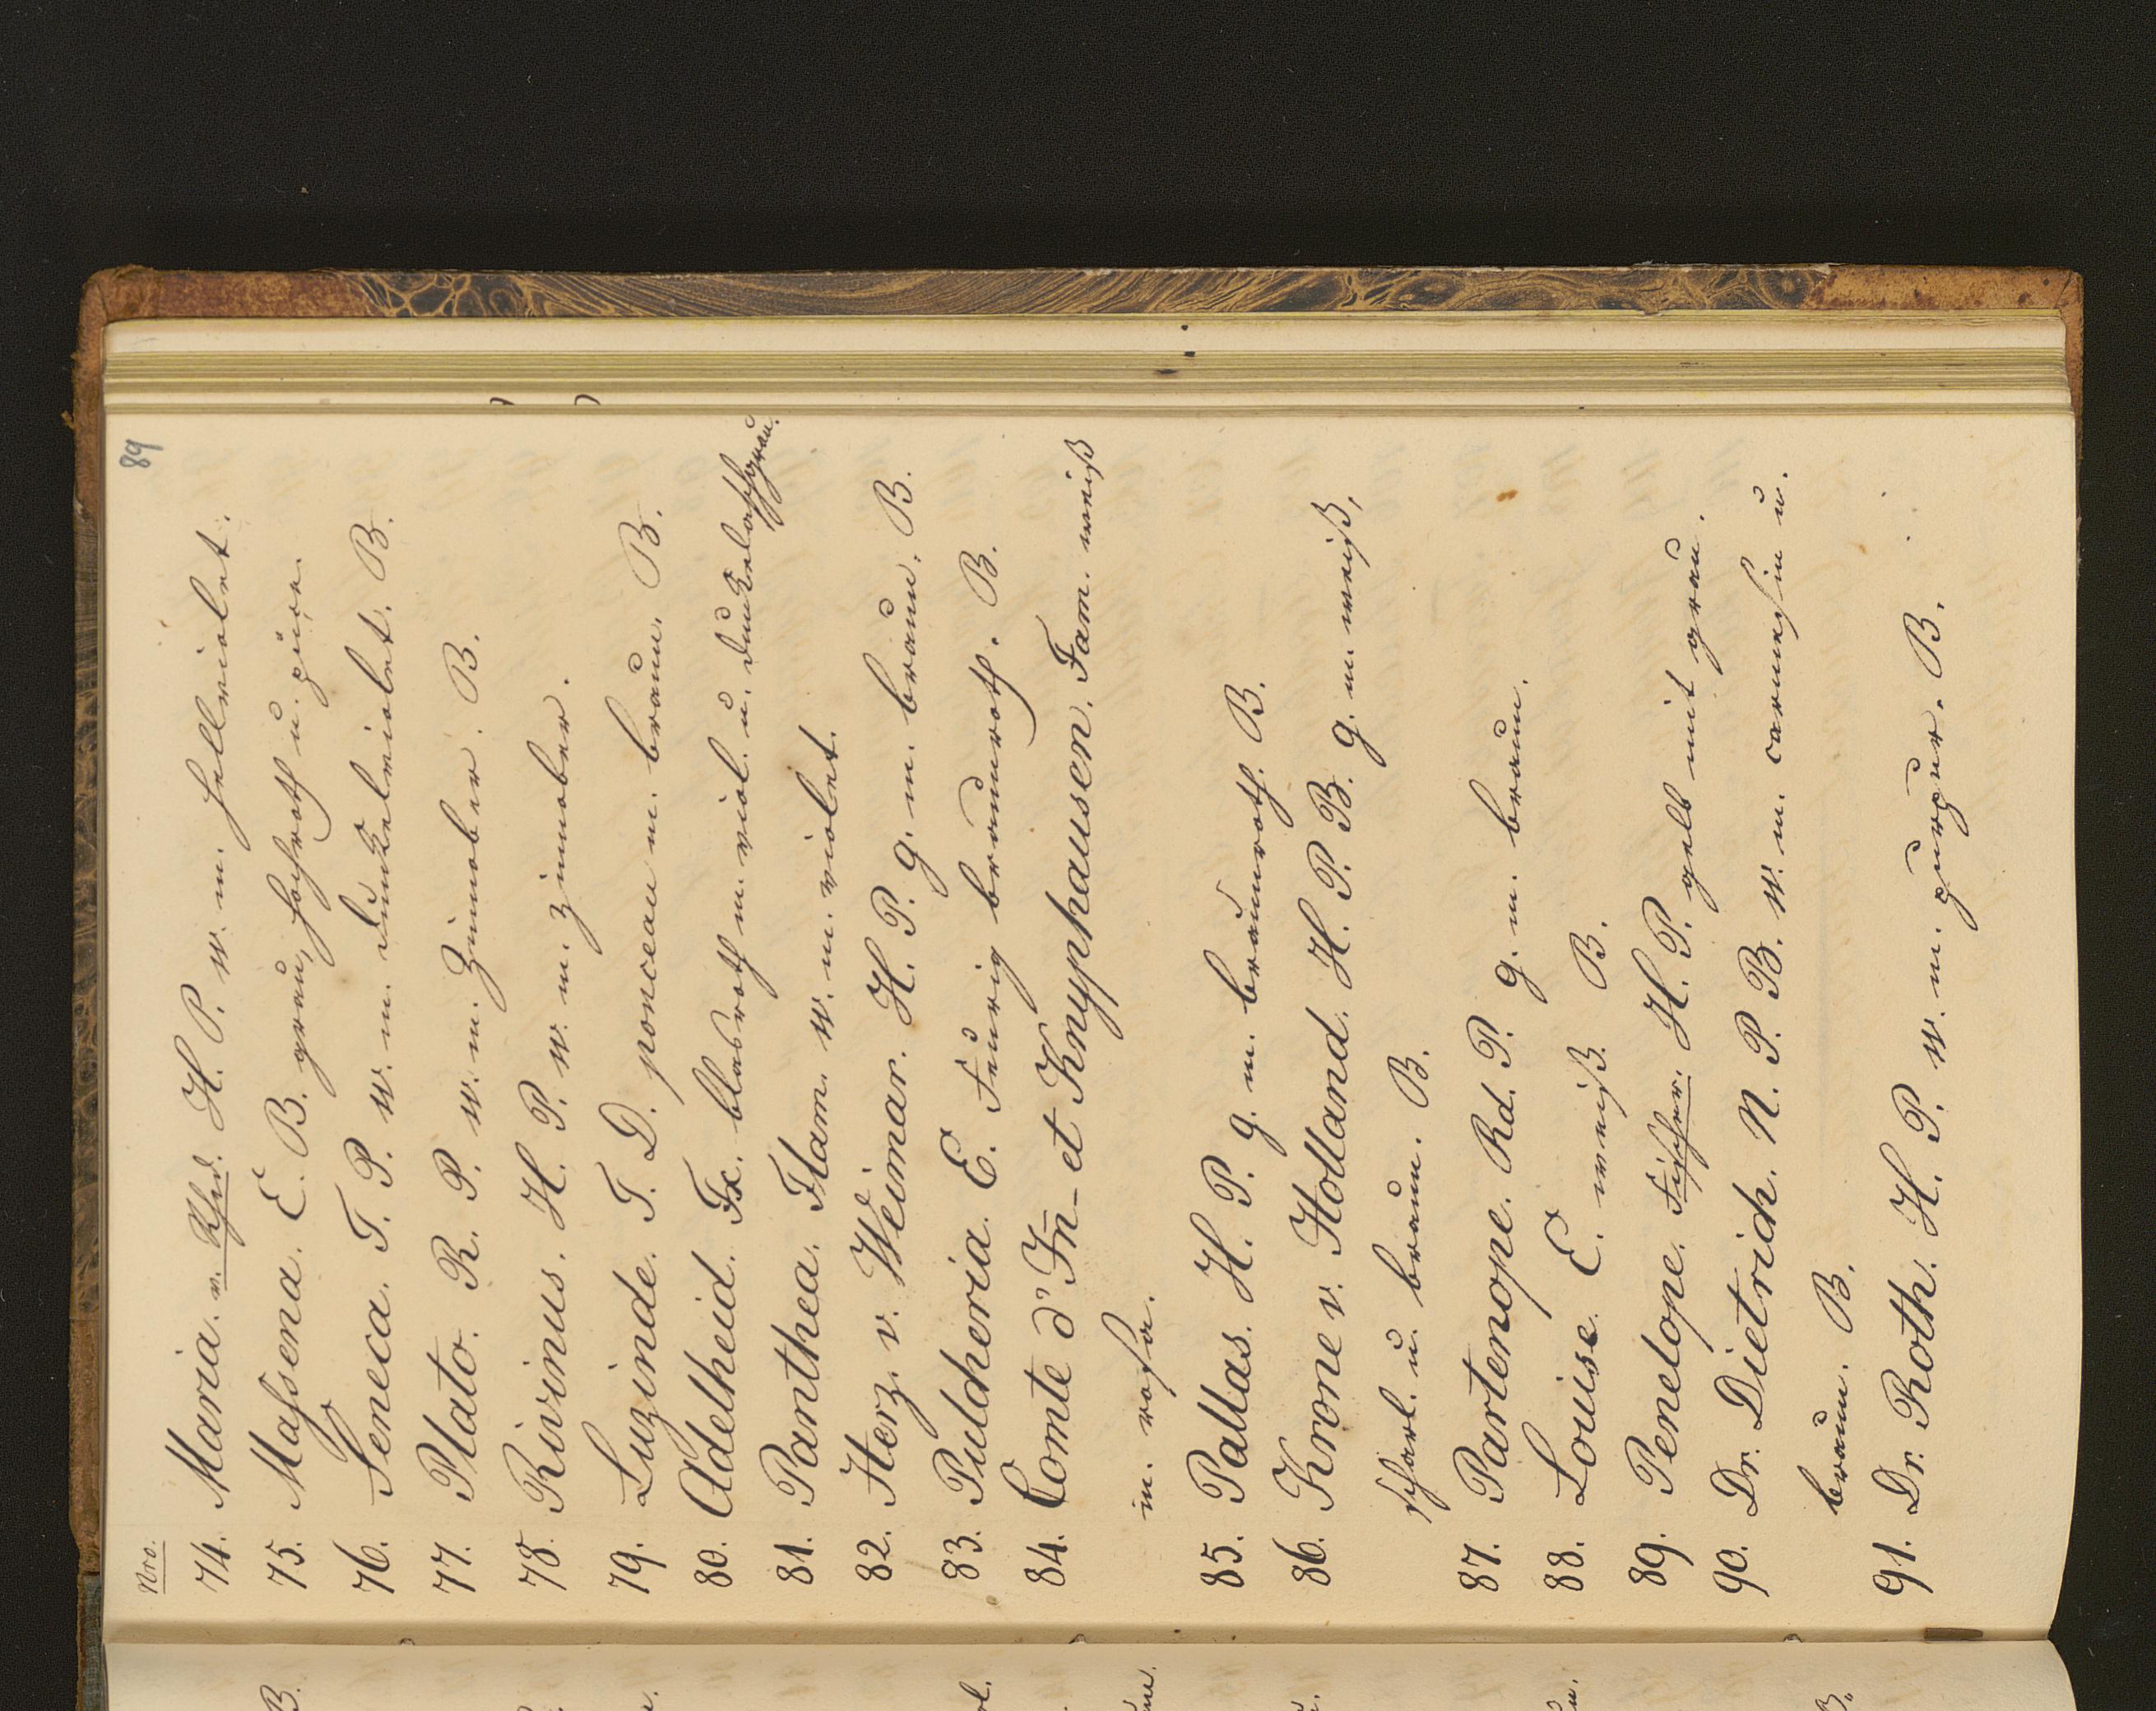 89
Nro.
74. Maria. v. Rhd. H. P. w. m. hellviolet.
75. Maſsena. E. B. grau, hochroth u. püce.
76. Seneca. T. P. w. m. dunkelviolet. B.
77. Plato. R. P. w. m. Zinnober. B.
78. Rivinus. H. P. w. m. zinnober.
79. Luzinde. T. D. ponceau m. braun. B.
80. Adelheid. Fx. blasroth m. viol. u. dunkelaschgrau.
81. Panthea. Flam. w. m. violet.
82. Herz. v. Weimar. H. P. g. m. braun. B.
83. Pulcheria. E. Feurig braunroth. B.
84. Comte d'In- et Knyphausen. Fam. weiß
m. rosa.
85. Pallas. H. P. g. m. braunroth. B.
86. Krone v. Holland. H. P. B. g. m. weiß,
scharl. u. braun. B.
87. Partenope. Rd. P. g. m. braun.
88. Louise. E. weiß. B.
89. Penelope. Fischer. H. P. gelb mit grau.
90. Dr. Dietrich. N. P. B. w. m. carmesin u.
braun. B.
91. Dr. Roth. H. P. w. m. purpur. B.